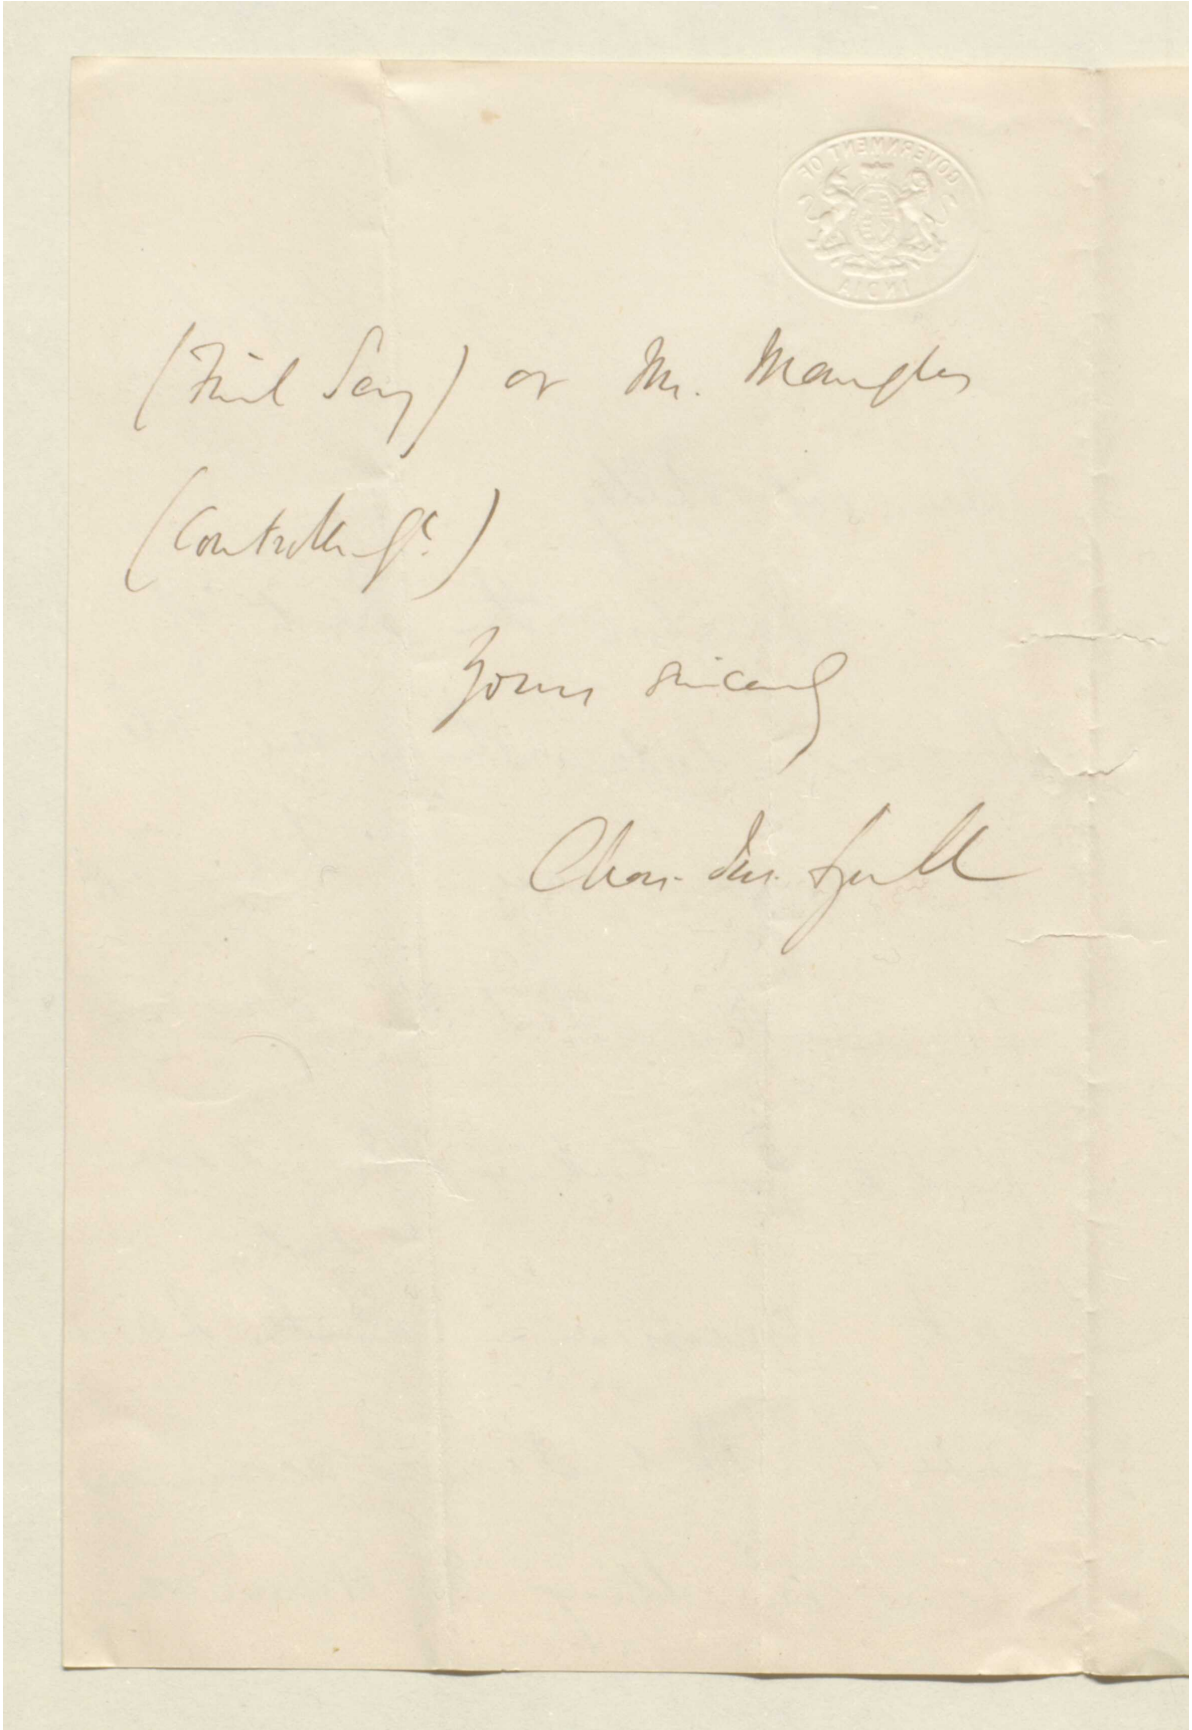 GOVERNMENT OF
INDIA
(Finl Secy) or Mr. Mangles
(Controller Gl.)
Yours sincerely
Chas. Jas. Lyall